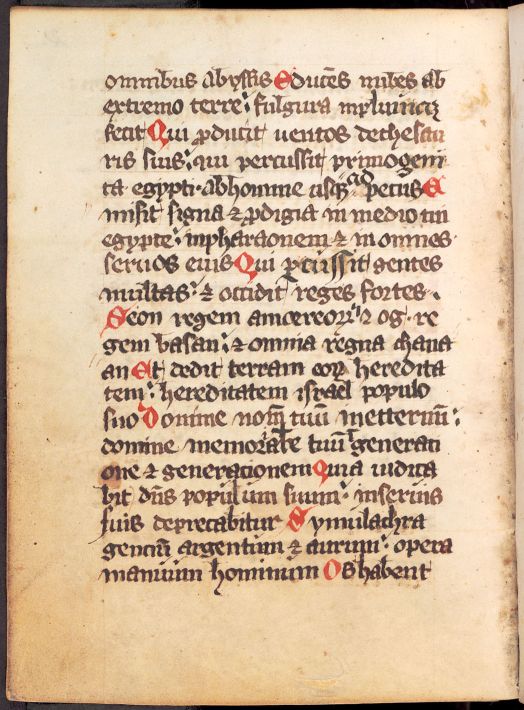 omnibus abyssis Educẽs nubes ab
extremo terre: fulgura inpluuiaʒ
fecit Qui ꝓducit uentos dethesau
ris suis: qui percussit primogeni
ta egypti· abhomine usqʒ ad pecus E
misit signa ⁊ ꝓdigia in medio tui
egypte: inpharaonem ⁊ in omnes
seruos eius Qui ꝑcussit gentes
multas: ⁊ occidit reges fortes.
Seon regem amorreoꝝ: ⁊ og· re
gem basan: ⁊ omnia regna chana
an Et dedit terram eoꝝ heredita
tem: hereditatem israel populo
suo Domine nom̃ tuũ ineternũ:
domine memoriale tuũ generati
one ⁊ generationem Quia iudica
bit dñs populum suum: inseruis
suis deprecabitur Symulachra
genciũ argentum ⁊ aurum: opera
manuum hominum Os habent